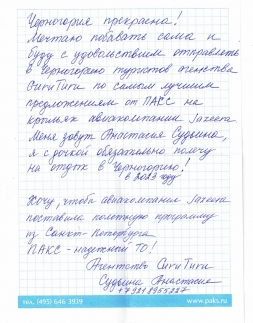 Черногория прекрасна!
Мечтаю побывать сама и
буду с удовольствием отправлять
в Черногорию туристов агентства
СитиТити по самым лучшим
предложениям от ПАКС на
крыльях авиакомпании
Меня зовут Анастасия Судьина,
я с дочкой обязательно полечу
на отдых в Черногорию!
в 2023 году
Хочу, чтобы авиакомпания
поставила полетную программу
из Санкт-Петербурга
ПАКС - надежный ТО!
Агентство СитиТити
Анастасия
тел. (495) 646 3939 www.paks.ru